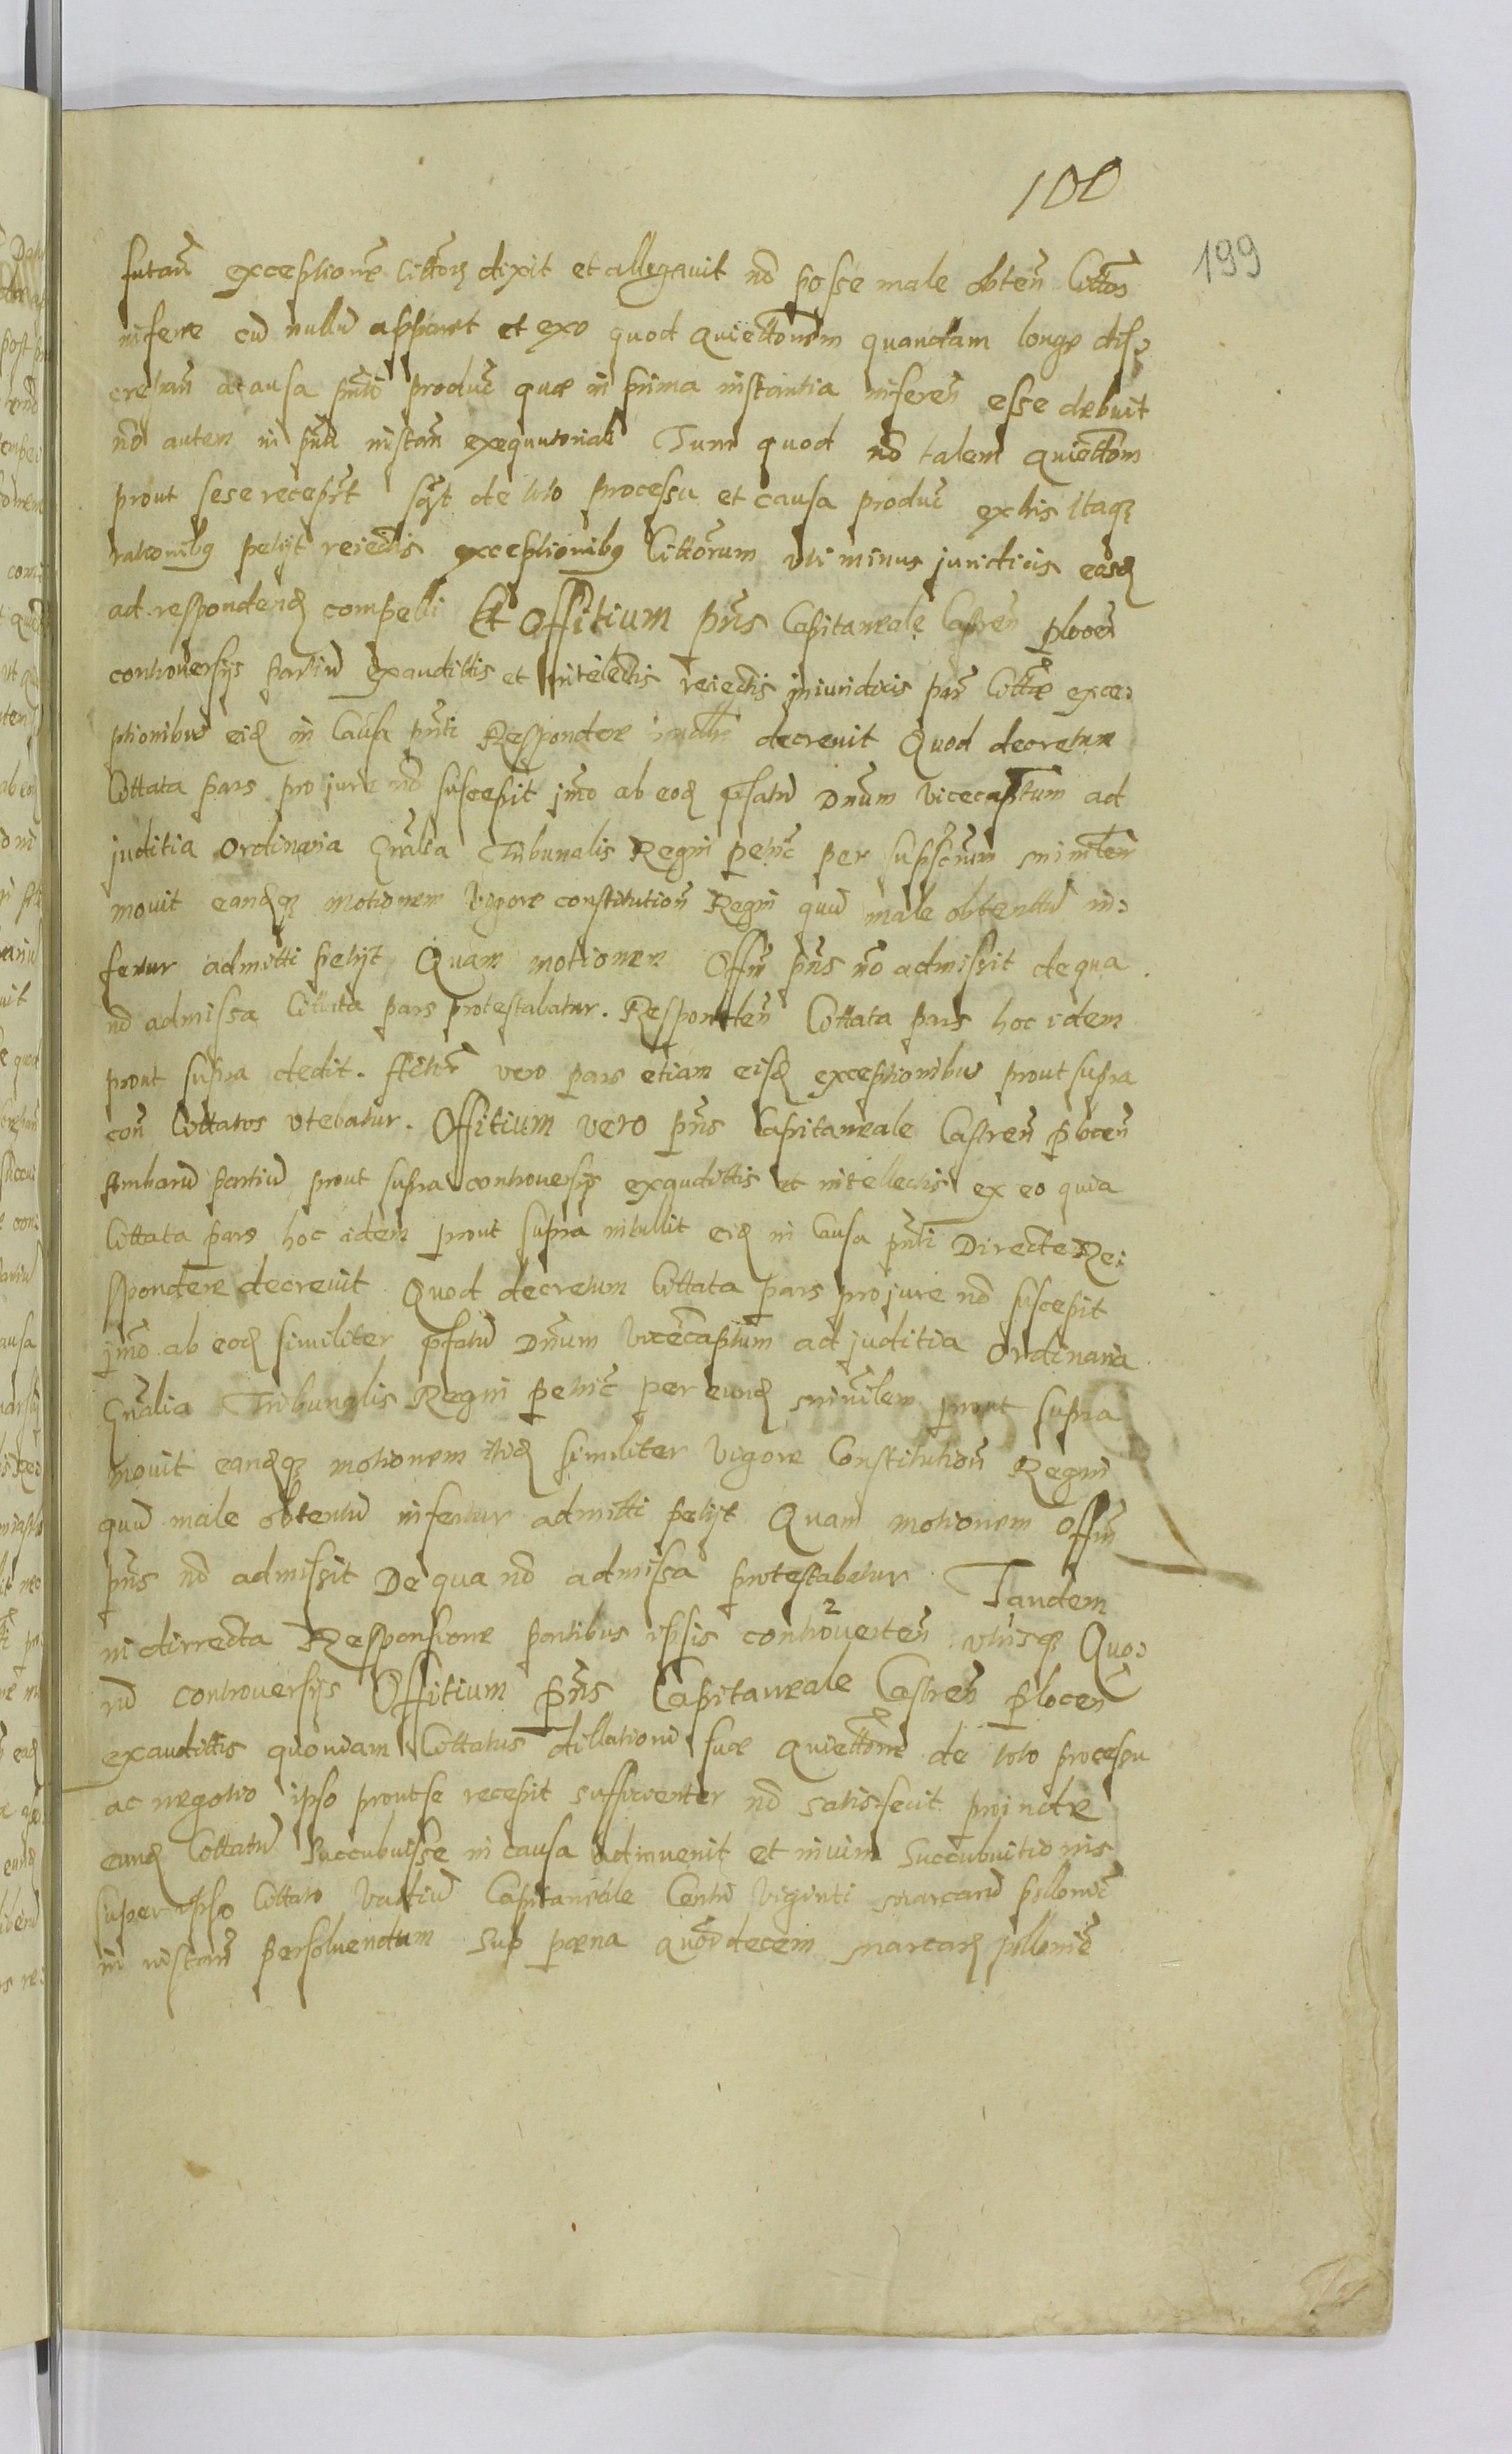 100
199
futan̄ exceptione Cittorꝝ dixit et allegauit nō posse male obten̄ Cittos
inferre cū nullū appareat et exeo quod quiettonem quandam longe dis:
crepan̄ a causa pn̄ti produc̄ quæ in prima instantia inferen̄ esse debuit
nō autem in pn̄ti instan̄ exequutoriali Tum quod nō talem quiettom̄
prout sese recepit sꝫt de toto processu et causa produc̄ ex his itaqꝫ
rationibꝰ petijt reiectis exceptionibꝰ Cittorum uti minus juridicis eosꝺ
ad respondenꝺ compelli Et Offitium pn̄s Capitaneale Castren̄ plocen̄
controuersijs partiū exaudittis et intelectis reiectis iniuridicis par̄ Cittæ exce:
ptionibus eiꝺ in Causa pn̄ti Respondere decreuit Quod decretum
Cittata pars pro jure nō suscepit jm̄o ab eoꝺ pfatū Dnum Vicecaptum ad
juditia Ordinaria Gn̄alia Tribunalis Regni petric̄ per supscrum minlem
mouit eanꝺqꝫ motionem Vigore constitution̄ Regni quū male obtentū in:
fertur admitti petijt Quam motionem Offm̄ pn̄s nō admissit de qua
nō admissa Cittata pars protestabatur. Responden̄ Cittata pars hoc idem
prout supra dedit. Actor̄ vero pars etiam eisꝺ exceptionibus prout supra
con̄ Cittatos utebatur. Offitium vero pn̄s Capitaneale Castren̄ plocen̄
Ambarū partiū prout supra controuersijs exaudittis et intellectis ex eo quia
Cittata pars hoc idem prout supra intullit eiꝺ in Causa pn̄ti Directe Re:
spondere decreuit Quod decretum Cittata pars pro jure nō suscepit
jm̄o ab eoꝺ similiter pfatū Dnum Vicecaptum ad juditia Ordinaria
Gn̄alia Tribunalis Regni petric̄ per eunꝺ minilem prout supra
mouit eanꝺqꝫ motionem itiꝺ similiter Vigore Constitution̄ Regni
quū male obtentū infertur admitti petijt Quam motionem Offm̄
pn̄s nō admissit De qua nō admissa protestabatur Tandem
in dirrecta Responsione partibus ipsis controuerten̄ utrisqꝫ Quo:
rū controuersijs Offitium pn̄s Capitaneale Castren̄ plocen̄
exaudittis quoniam Cittatus dillationi suæ quiettone de toto processu
ac negotio ipso prout se recepit sufficienter nō satisfecit proinde
eunꝺ Cittatū Succubuisse in causa adinuenit et in uim Succubuitionis
super ipso Cittato Vadiū Capitaneale Centū Viginti marcarū pollonic̄
in instan̄ persoluendum Sup poena quordecem marcarꝝ pollonic̄